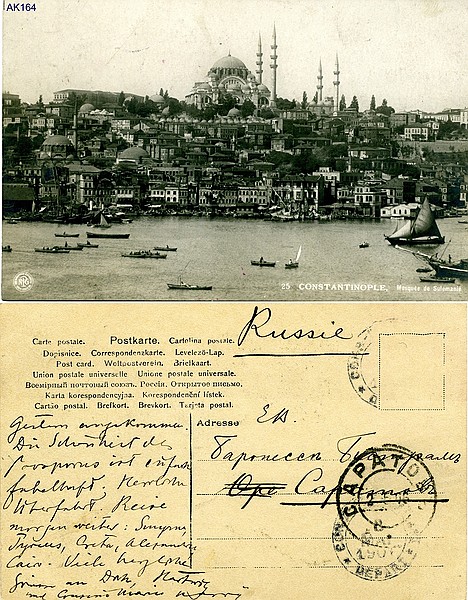 AK164
25 CONSTANTINOPLE. Mosquée de Suleimanié
NPG
Russie
Carte postale. Postkarte. Cartolina postale.
Dopisnice. Correspondenzkarte. Levelező-Lap.
Post card. Weltpostverein. Briefkaart.
Union postale universelle. Unione postale universale.
Всемірный почтовый союзъ. Россія. Открытое письмо.
Karta korespondencyjna. Korespondenční lístek.
Cartão postal. Brefkort. Brevkort. Tarjeta postal.
Adresse
Ев.
Баронессѣ
САРАТОВ
1907
DEPART
Gestern angekommen.
Die Schönheit des
Bosporus ist einfach
fabelhaft, Herrliche
Überfahrt. Reise
morgen weiter: Smyrna,
Creta, Alexandria
Cairo. Viele herzliche
Grüsse an Dich,